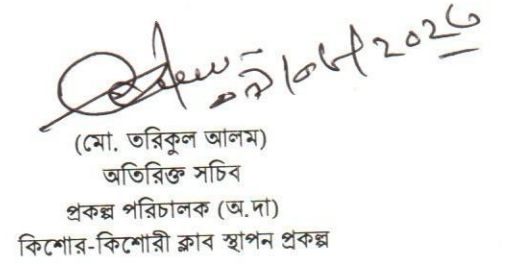 ০৯/০৮/২০২৩
(মো. তরিকুল আলম)
অতিরিক্ত সচিব
প্রকল্প পরিচালক (অ.দা)
কিশোর-কিশোরী ক্লাব স্থাপন প্রকল্প